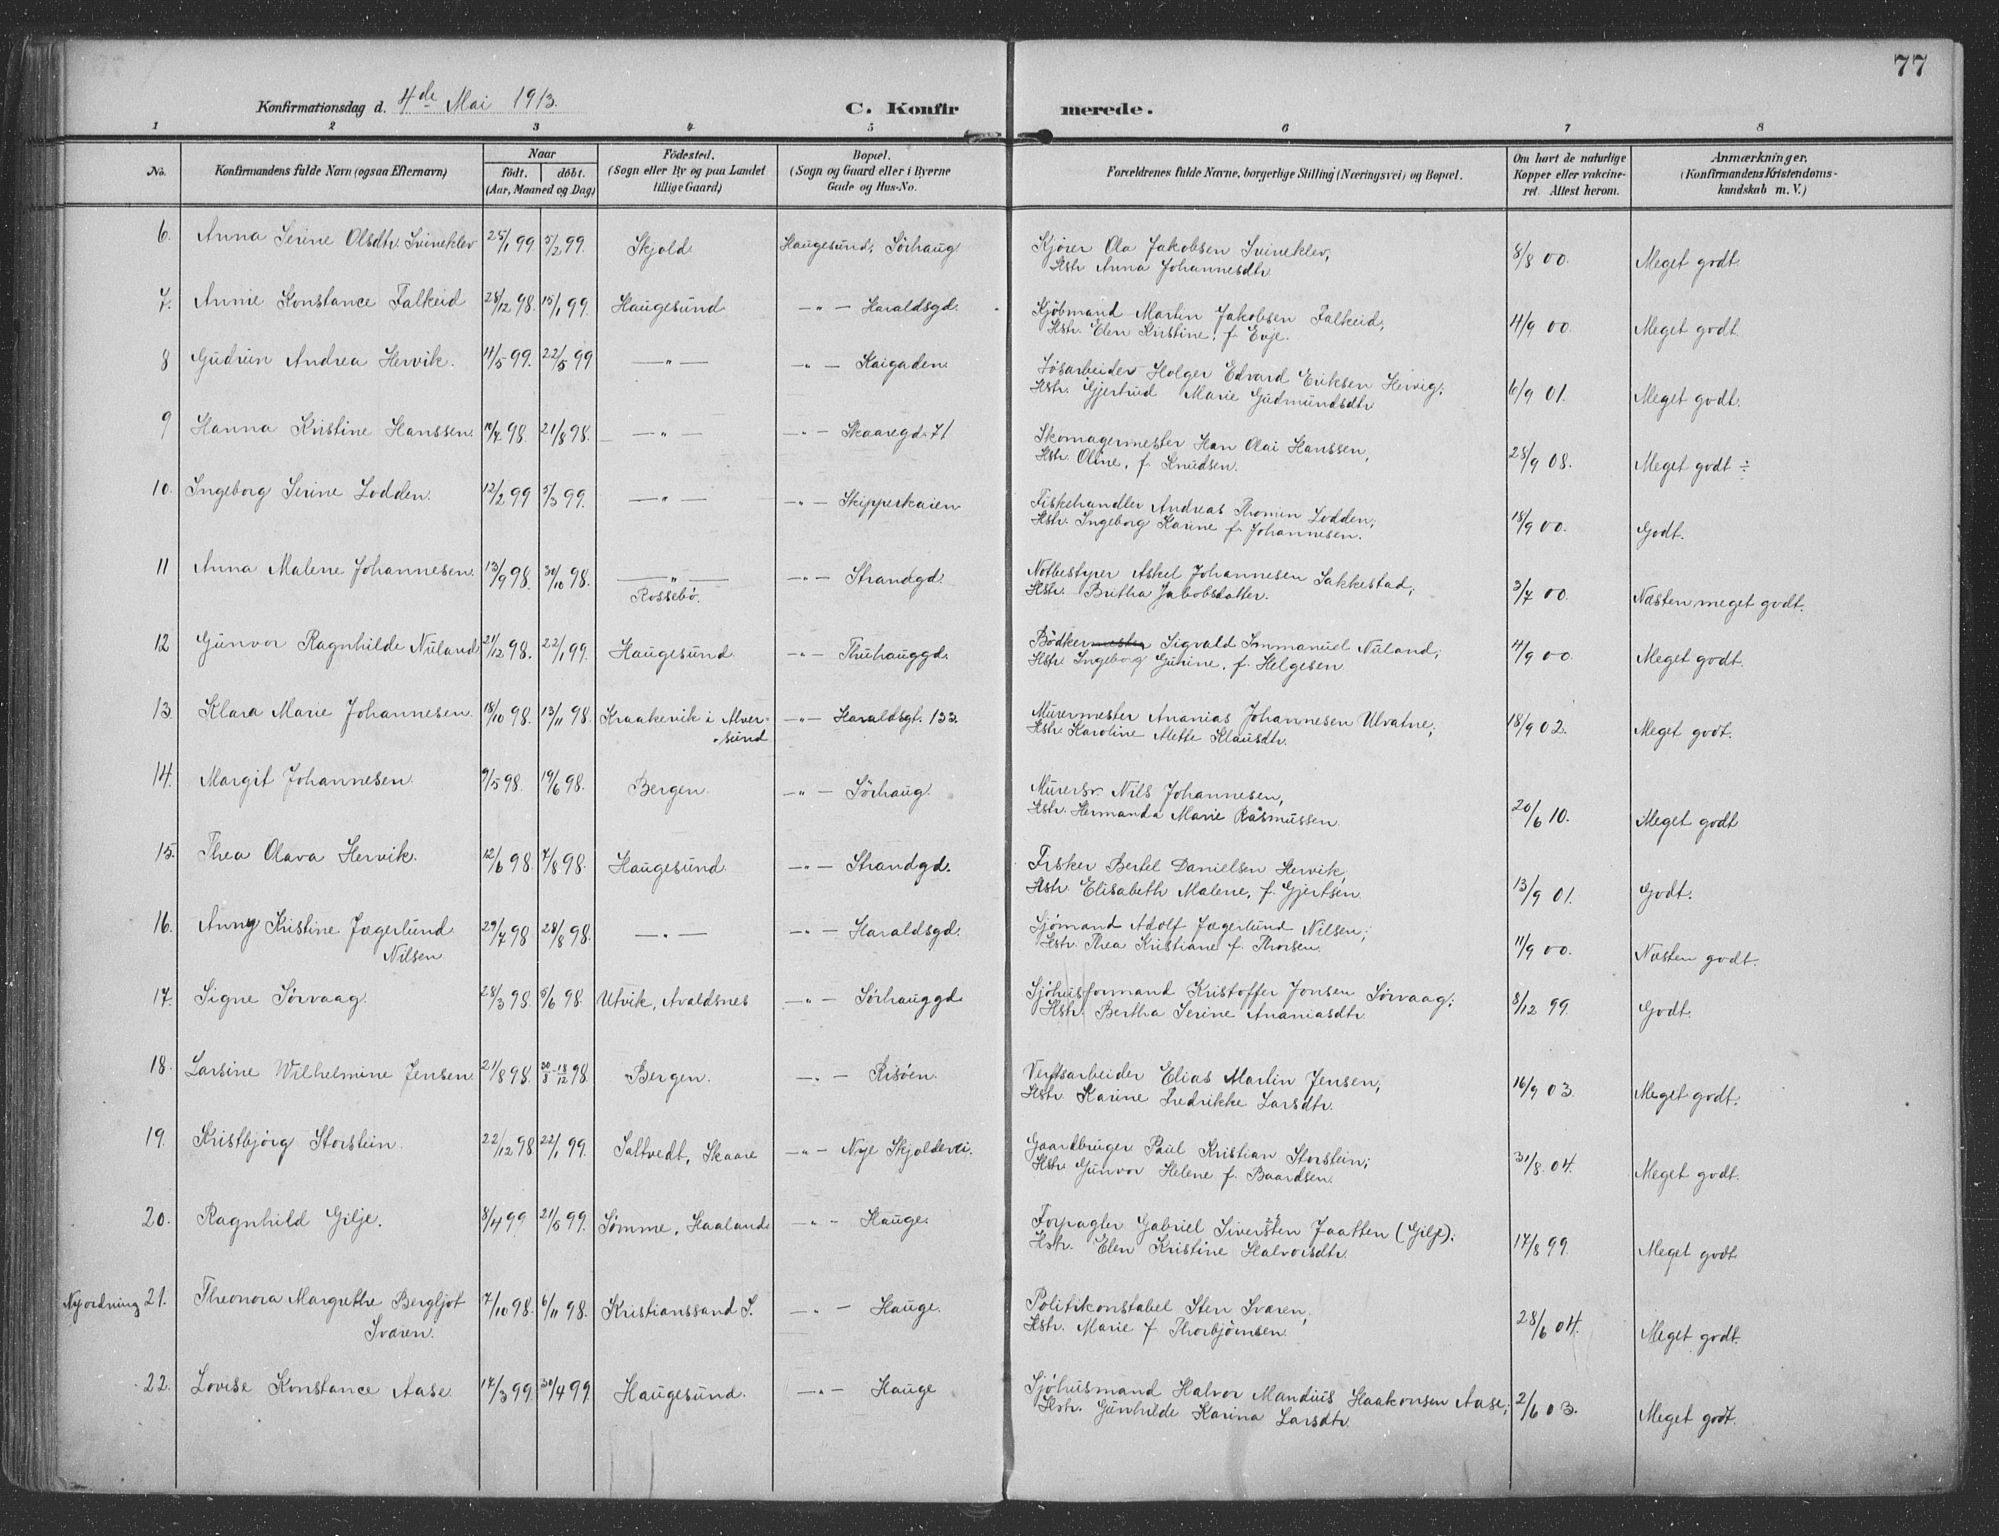 77
Konfirmationsdag d. 4de Mai 1913.
C. Konfirmerede.
1 2 3 4 5 6 7 8
No. Konfirmandens fulde Navn (ogsaa Efternavn) Naar født. døbt. (Aar, Maaned og Dag) Födested. (Sogn eller By og paa Landet tillige Gaard) Bopæl. (Sogn og Gaard eller i Byerne Gade og Hus-No. Forældrenes fulde Navne, borgerlige Stilling (Næringsvei) og Bopæl. Om havt de naturlige Kopper eller vakcineret. Attest herom. Anmærkninger. (Konfirmandens Kristendomskundskab m. V.)
6. Anna Serine Olsdtr. Svineklev 25/1 99 5/2 99. Skjold. Haugesund, Sørhaug Kjører Ola Jakobsen Svineklev, 8/8 00. Meget godt.
Hstr Anna Johannesdtr
7. Annie Konstance Falkeid 28/12 98. 15/1 99. Haugesund —"— Haraldsgd. Kjøbmand Martin Jakobsen Falkeid, 4/9 00. Meget godt.
Hstr. Elen Kristine, f. Evje.
8 Gudrun Andrea Hervik. 4/5 99. 22/5 99 —"— —"— Kaigaden. Løsarbeider Holger Edvard Eriksen Hervig, 6/9 01. Meget godt.
Hstr. Gjertrud Marie Gudmundsdtr
9 Hanna Kristine Hanssen. 10/7 98. 21/8 98. —"— —"— Skaaregd. 71 Skomagermester Han Olai Hanssen, 28/9 08. Meget godt ÷
Hstr. Oline, f. Knudsen.
10. Ingeborg Serine Lodden. 12/2 99 5/3 99. —"— —"— Skipperkaien Fiskehandler Andreas Thomin Lodden, 18/9 00. Godt.
Hstr. Ingeborg Karine f. Johannesen.
11 Anna Malene Johannesen. 13/9 98. 30/10 98. —"— —"— Strandgd. Notbestyrer Askel Johannesen Sakkestad, 3/7 00. Næsten meget godt.
Rossebø. Hstr. Britha Jakobsdatter.
12 Gunvor Ragnhilde Nuland 21/12 98. 22/1 99. Haugesund —"— Thuhauggd. Bødkermester Sigvald Immanuel Nuland, 4/9 00. Meget godt.
Hstr. Ingeborg Gurine, f. Helgesen
13. Klara Marie Johannesen. 18/10 98. 13/11 98. Kraakevik i Alver- —"— Haraldsgt. 133. Murermester Ananias Johannesen Ulvatne, 18/9 02. Meget godt.
sund Hstr. Karoline Mette Klausdtr.
14. Margit Johannesen. 9/5 98. 19/6 98. Bergen. —"— Sørhaug. Murersv. Nils Johannesen, 20/6 10. Meget godt
Hstr. Hermanda Marie Rasmussen.
15. Thea Olava Hervik. 12/6 98. 7/8 98. Haugesund —"— Strandgd. Fisker Bertel Danielsen Hervik, 13/9 01. Godt.
Hstr. Elisabeth Malene, f. Gjertsen.
16. Anny Kristine Jægerlund 29/7 98. 28/8 98. —"— —"— Haraldsgd. Sjømand Adolf Jægerlund Nilsen, 11/9 00. Næsten godt.
Nilsen Hstr. Thea Kristiane f. Thorsen.
17. Signe Sørvaag. 28/3 98. 5/6 98. Utvik, Avaldsnes —"— Sørhauggd. Sjøhusformand Kristoffer Jonsen Sørvaag, 8/12 99. Godt.
Hstr. Bertha Serine Ananiasdtr.
18. Larsine Wilhelmine Jensen 21/8 98. 30/8 - 18/12 98. Bergen. —"— Risøen. Verftsarbeider Elias Martin Jensen, 16/9 03. Meget godt.
Hstr Karine Fredrikke Larsdtr.
19. Kristbjørg Storstein. 22/12 98 22/1 99. Saltvedt, Skaare —"— Nye Skjoldevei. Gaardbruger Paul Kristian Storstein, 31/8 04. Meget godt.
Hstr Gunvor Helene f. Baardsen.
20. Ragnhild Gilje. 8/4 99 21/5 99. Sømme, Haaland —"— Hauge. Forpagter Gabriel Siversten Jaatten (Gilje). 17/8 99. Meget godt.
Hstr. Elen Kristine Halvorsdtr.
Nyordning 21. Theonora Margrethe Bergljot 7/10 98. 6/11 98. Kristianssand S. —"— Hauge. Politikonstabel Sten Svaren, 28/6 04. Meget godt.
Svaren. Hstr. Marie f Thorbjørnsen.
22. Lovise Konstance Aase. 17/3 99 30/4 99. Haugesund. —"— Hauge Sjøhusmand Halvor Mandius Haakonsen Aase, 2/6 03. Meget godt.
Hstr. Gunhilde Karina Larsdtr.